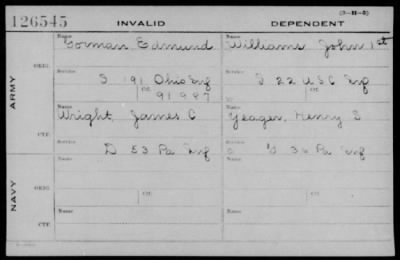 (3-11-3)
126545 INVALID DEPENDENT
Name Name
Gorman, Edmund Williams John 1st
ORIG.
Service Service
S 191 Ohio Inf I 22 U S C Inf
Ctf.
91987
ARMY
Name Name
Wright, James C Yeager, Henry S
CTF.
Service Service
D 53 Pa Inf G 36 Pa Inf
Name Name
ORIG.
Service Service
Ctf. Ctf.
NAVY
Name Name
CTF.
Service Service